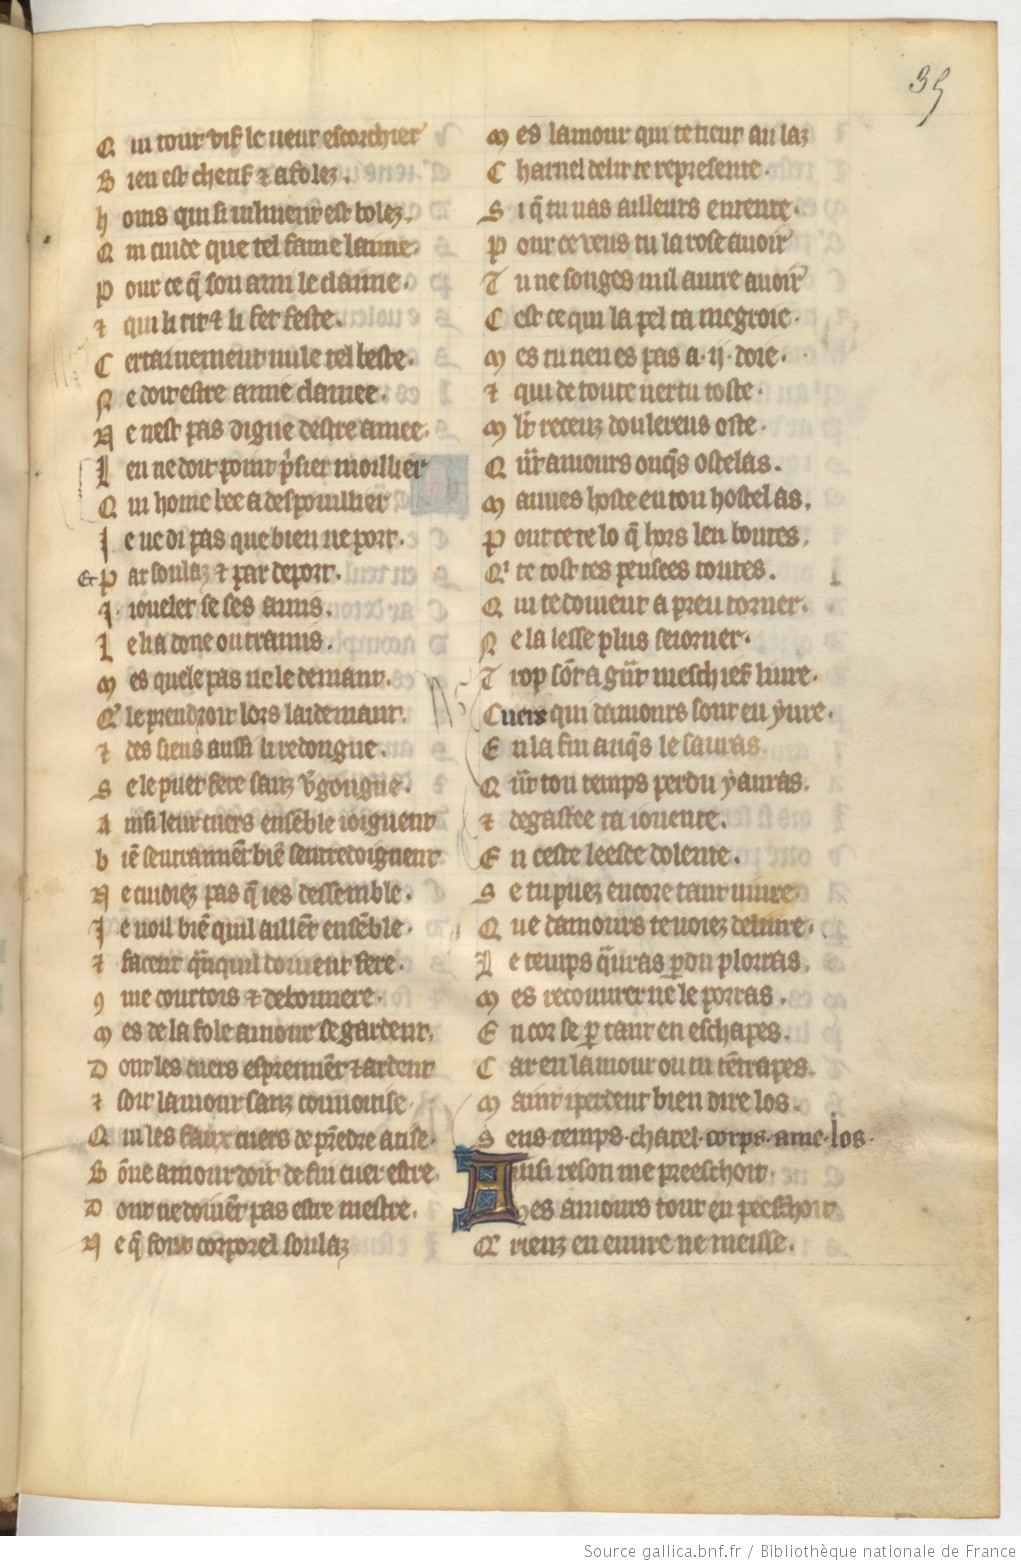 35
Q ui tout vif le veut escorchier
B ien est chetif ⁊ afolez.
h oms qui si vilment est bolez.
Q ui cuide que tel fame laime.
P our ce q̃ son ami le claime.
⁊ qui li rit ⁊ li fet feste.
C ertainement nule tel beste.
N e doit estre amie clamee.
N e nest pas digne destre amee.
L en ne doit point p̃sier moillier
Q ui home bee a despouillier
J e ne di pas que bien ne port.
⁊ P ar soulaz ⁊ par deport.
J. iouelet se ses amis.
L e li a done ou tramis.
M es quele pas ne le demant.
Q' le prendroit lors laidemant.
⁊ des siens aussi li redongne.
S e le puet fere sanz v̾gongne.
A insi leur cuers ensẽble ioignent
b iẽ sentraimẽt biẽ sentredoignent
N e cuidiez pas q̃ ies dessemble.
J e voil biẽ quil aillẽt ensẽble.
⁊ facent q̃nquil doivent fere.
9 me courtois ⁊ debonnere.
M es de la fole amour se gardent.
D ont les cuers esprennẽt ⁊ ardent
⁊ soit lamour sanz couvoitise.
Q ui les faux cuers de p̃ndre atise.
B õne amour doit de fin cuer estre.
D ont ne doivẽt pas estre mestre.
N e q̃ font corporel soulaz
M es lamour qui te tient au laz
C harnel delit te represente.
S i q̃ tu nas ailleurs entente.
P our ce veus tu la rose avoir
T u ne songes nul autre avoir
C est ce qui la pel ta megroie.
M es tu nen es pas a .ij. doie.
⁊ qui de toute vertu toste.
M lt̃ receuz doulereus oste.
Q ñt amours onq̃s ostelas.
M auves hoste en ton hostel as.
P our ce te lo q̃ hors len boutes.
Q' te tost tes pensees toutes.
Q ui te doivent a preu torner.
N e la lesse plus seiorner.
T rop sõt a gñt meschief livre.
Cuers qui damours sont en yvre.
E n la fin auq̃s le sauras.
Q ñt ton temps perdu y auras.
⁊ degastee ta iouente.
E n ceste leesce dolente.
S e tu puez encore tant vivre.
Q ue damours te voiez delivre.
L e temps q̃ uras p̱du plorras.
M es recouvrer ne le porras.
E ncor se p̱ tant en eschapes.
C ar en lamour ou tu tẽtrapes.
M aint i perdent bien dire los.
S ens. temps. chatel. corps. ame. los.
A insi reson me preeschoit.
M es amours tout en peeschoit
Q' riens en euvre ne meisse.
Source gallica.bnf.fr / Bibliothèque nationale de France